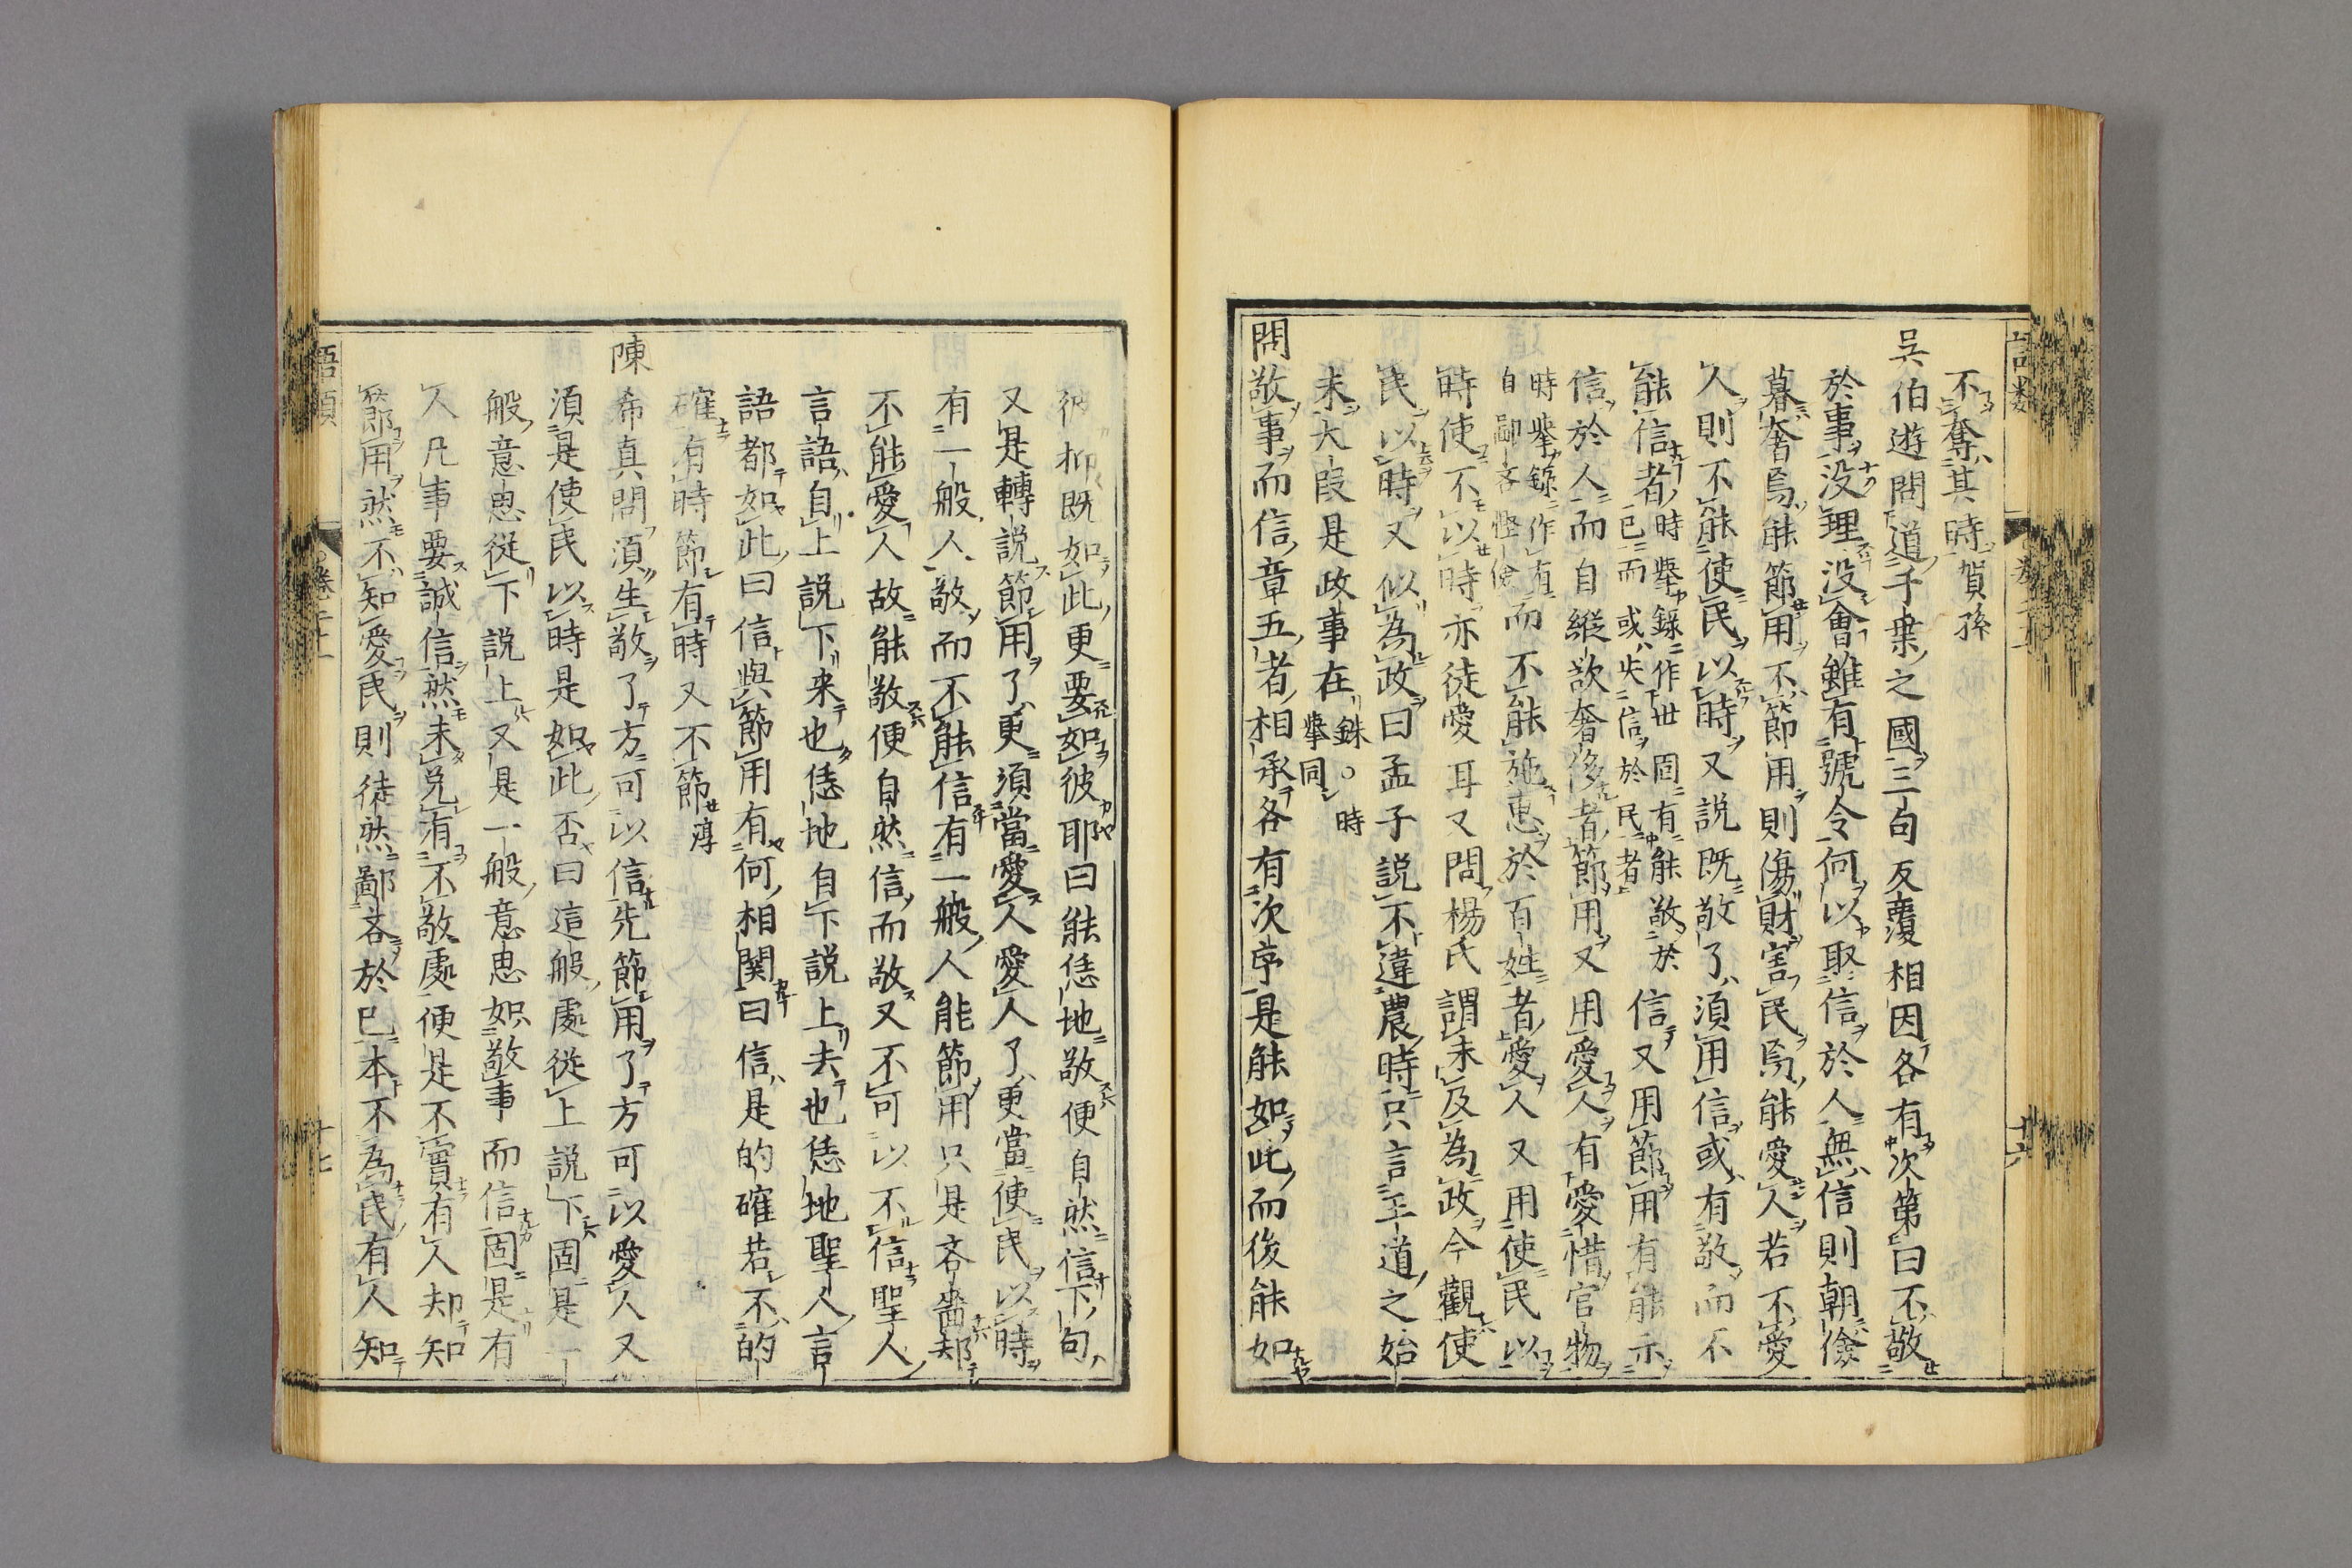 不奪其時賀孫
吳伯遊問道千乗之國三句反覆相因各有次第曰不敬
於事没理没會雖有號令何以取信於人無信則朝儉
暮奢焉能節用不節用則傷財害民焉能愛人若不愛
人則不能使民以時又説既敬了須用信或有敬而不
能信者時舉録作世固有能敬於己而或失信於民者信又用節用有能示
信於人而自縱欲奢侈者節用又用愛人有愛惜官物
時舉録作有自鄙吝慳儉而不能施惠於百姓者愛人又用使民以
時使不以時亦徒愛耳又問楊氏謂未及為政今觀使
民以時又似為政曰孟子説不違農時只言王道之始
未大段是政事在銖○時舉同
問敬事而信章五者相承各有次序是能如此而後能如
彼抑既如此更要如彼耶曰能恁地敬便自然信下句
又是轉説節用了更須當愛人愛人了更當使民以時
有一般人敬而不能信有一般人能節用只是吝嗇却
不能愛人故能敬便自然信而敬又不可以不信聖人
言語自上説下来也恁地自下説上去也恁地聖人言
語都如此曰信與節用有何相関曰信是的確若不的
確有時節有時又不節淳
陳希真問須生敬了方可以信先節用了方可以愛人又
須是使民以時是如此否曰這般處從上説下固是一
般意思從下説上又是一般意思如敬事而信固是有
人凡事要誠信然未免有不敬處便是不實有人却知
節用然不知愛民則徒然鄙吝於己本不為民有人知
語類
卷二十一
十六
語類
卷二十一
十七